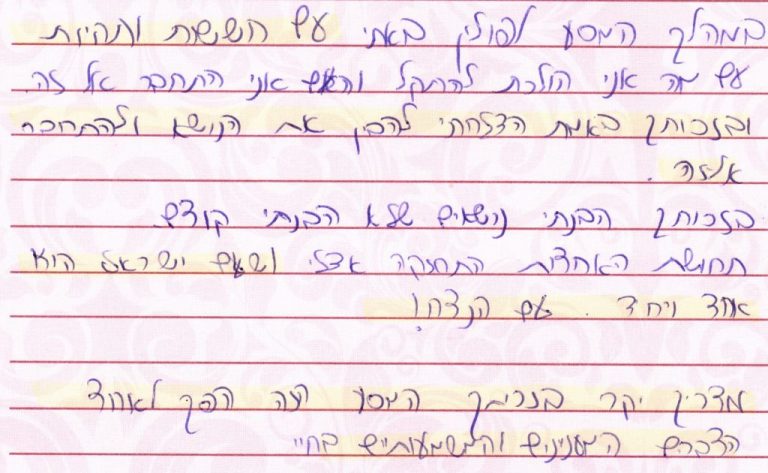 במהלך המסע לפולין באתי עם חששות ותהיות
עם מה אני הולכת להתקל והאם אני אתחבר אל זה.
ובזכותך באמת הצלחתי להבין את הנושא ולהתחבר
אליו.
בזכותך הבנתי נושאים שלא הבנתי קודם
תחושת האחדות התחזקה אצלי ושעם ישראל הוא
אחד ויחד. עם הנצח!
מדריך יקר בזכותך המסע הזה הפך לאחד
הדברים המעניינים והמשמעותיים בחיי